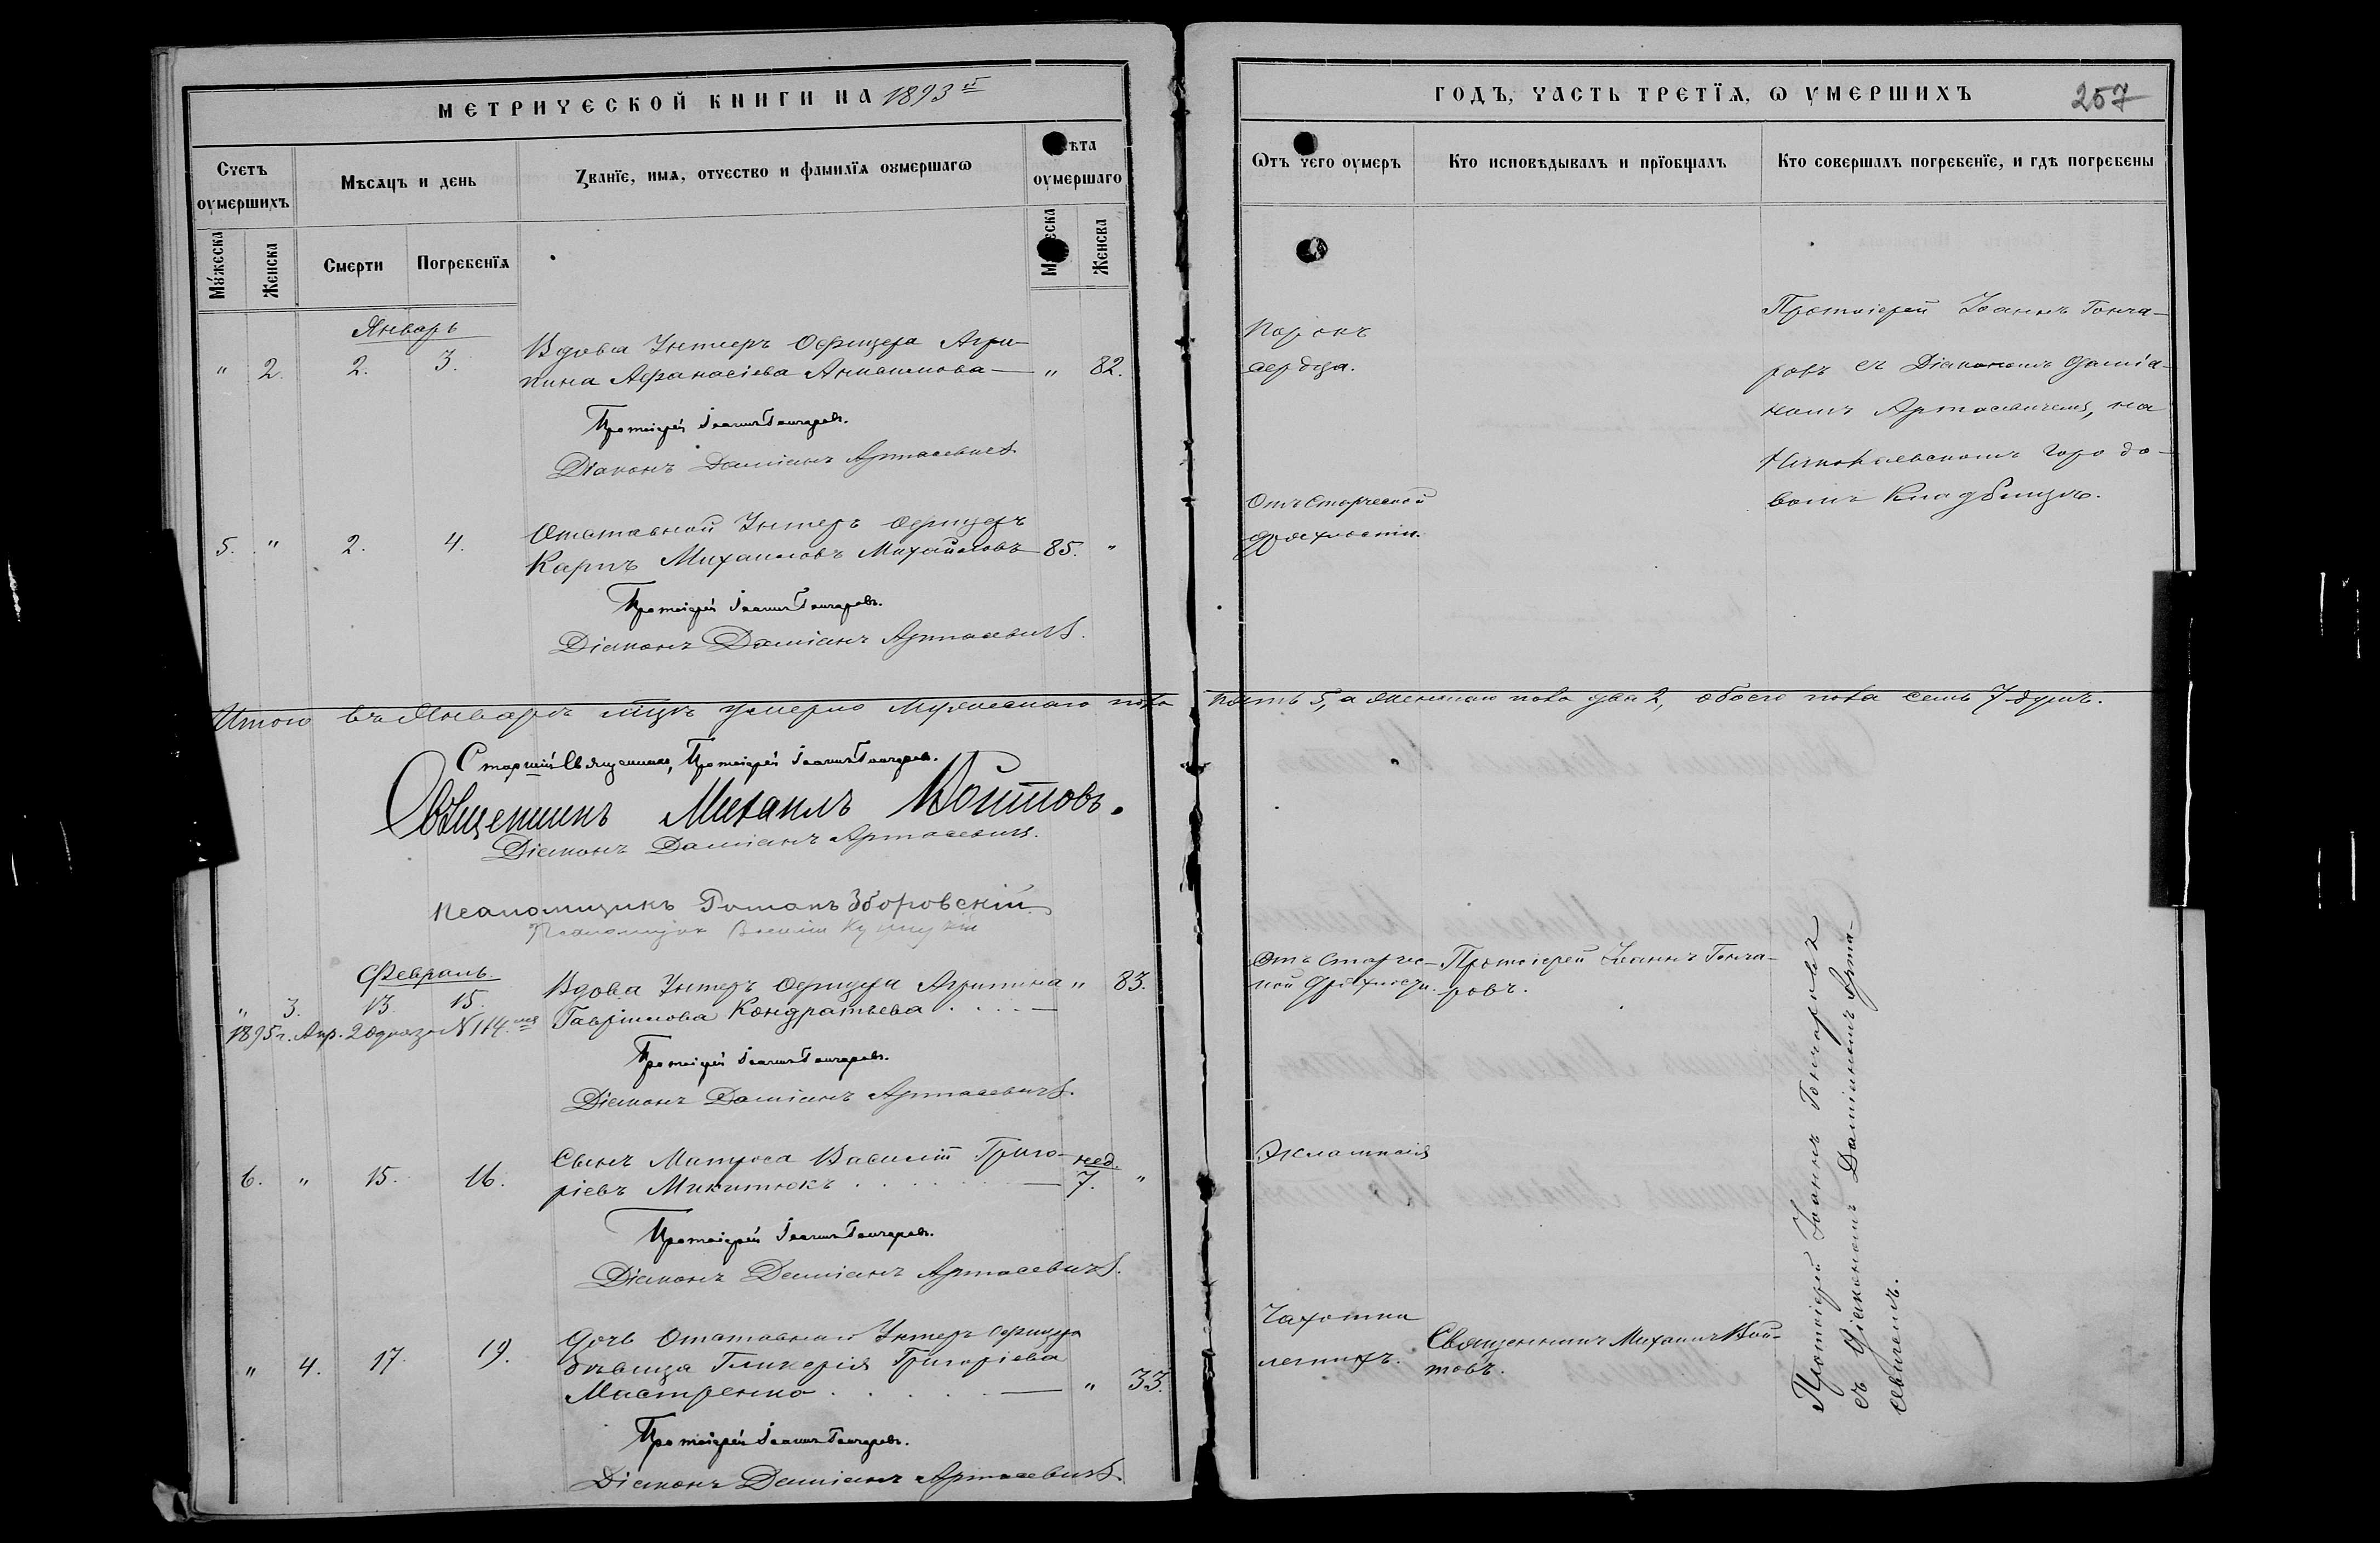 МЕТРИЧЕСКОЙ КНИГИ НА 1893й
Счетъ оумершихъ
Мѣсяцъ и день
Званїе, имя, отчество и фамилїя оумершагѡ
Лѣта оумершаго
Мужеска
Женска
Смерти
Погребенїя
Мужеска
Женска
Январь
" 2. 2. 3.
Вдова Унтеръ Офицера Агри-
пина Афанасіева " 82.
Протоіерей Іоаннъ Гончаровъ.
Діаконъ Даміанъ Артасевичъ
5. " 2. 4.
Отставной Унтеръ Офицеръ
Карпъ Михаиловъ Михайловъ 85. "
Протоіерей Іоаннъ Гончаровъ.
Діаконъ Даміанъ Артасевичъ.
Итого въ Январѣ мцѣ умерло Мужескаго пола
Старшій Священникъ, Протоіерей Іоаннъ Гончаровъ.
Священникъ Михаилъ Войтовъ.
Діаконъ Даміанъ Артасевичъ.
Псаломщикъ Романъ Зборовскій
Псаломщикъ
Февраль.
" 3. 13. 15.
Вдова Унтеръ Офицера Агрипина " 83.
1895 г. Апр. 20 дня за N 114
Гавріилова Кондратьева
Протоіерей Іоаннъ Гончаровъ.
Діаконъ Даміанъ Артасевичъ.
6. " 15. 16.
Сынъ Матроса Василій Григо- нед.
ріевъ Микитюкъ 7. "
Протоіерей Іоаннъ Гончаровъ.
Діаконъ Даміанъ Артасевичъ.
" 4. 17. 19.
Дочь Отставнаго Унтеръ Офицера
дѣвица Гликерія Григоріева
Мастренко " 33.
Протоіерей Іоаннъ Гончаровъ.
Діаконъ Даміанъ Артасевичъ.
ГОДЪ, ЧАСТЬ ТРЕТЇЯ, Ѡ УМЕРШИХЪ
257
Ѡтъ чего оумеръ
Кто исповѣдывалъ и прїобщалъ
Кто совершалъ погребенїе, и гдѣ погребены
Порокъ
сердца.
Протоіерей Іоаннъ Гонча-
ровъ съ Діакономъ Даміа-
номъ Артасевичемъ, на
Николаевскомъ Городо-
вомъ Кладбищѣ.
Отъ Старческой
дряхлости.
пять 5, а женскаго пола два 2, обоего пола семь 7 душъ.
Отъ Старчес-
кой дряхлости.
Протоіерей Іоаннъ Гонча-
ровъ.
Эклампсія
Чахотка
легкихъ.
Священникъ Михаилъ Вой-
товъ.
Протоіерей Іоаннъ Гончаровъ
съ Діакономъ Даміаномъ Арта-
севичемъ.